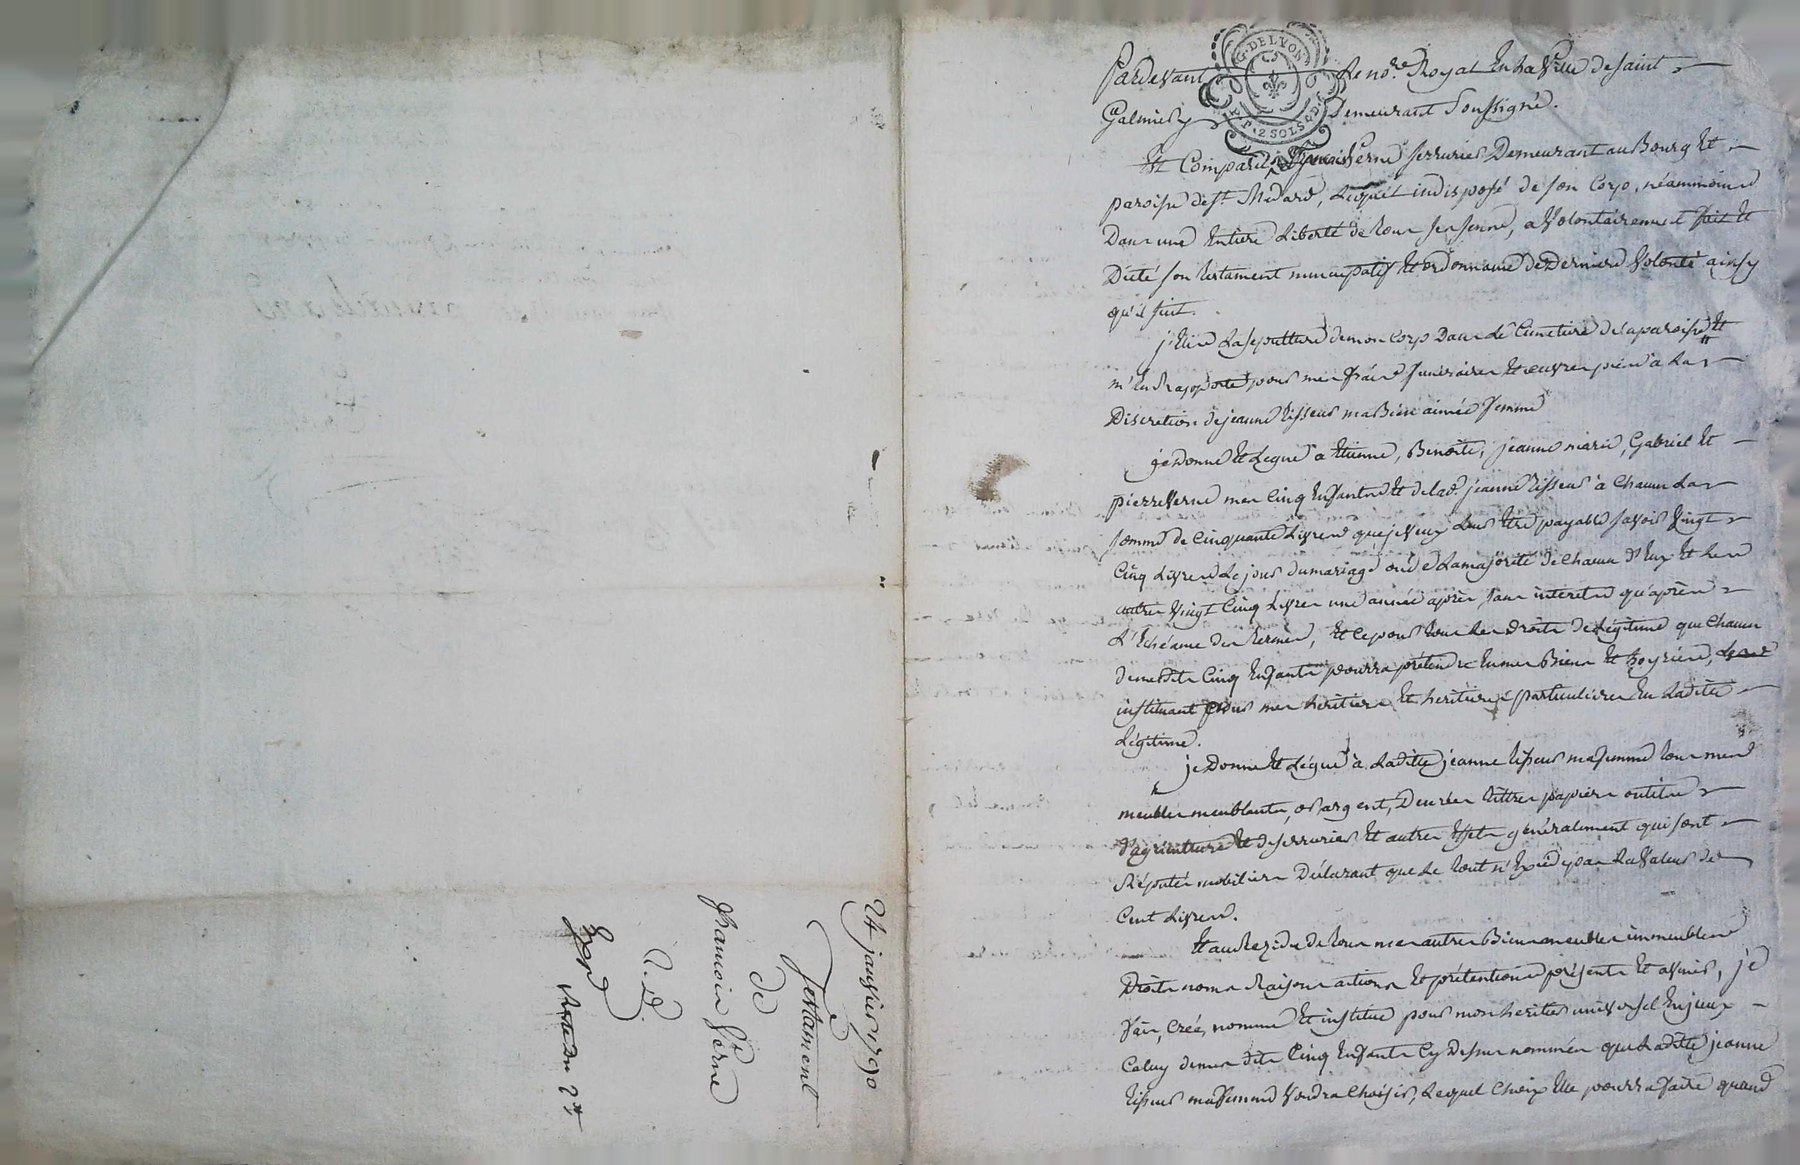 G. DE LYON
2 SOLS 4 D.
Pardevant Le no.re Royal En La Ville de saint
Galmier y Demeurant soussigné.
Est Comparu françois Verne serrurier Demeurant au Bourg Et
paroisse de st Medard, Lequel indisposé de son Corp, néammoins
Dans une Entiere Liberté de tous ses sens, a Volontairement fait Et
Dicté son testament nuncupatif Et ordonnance de Derniere Volonté ainsy
qu'il suit.
j'Elis La sepulture de mon Corp Dans Le Cimetiere de La paroisse Et
m'En Rapporte pour mes frais funeraires Et œuvres pies à La
Discretion de jeanne tisseur ma Bien aimée femme
je Donne Et Legue a Etienne, Benoite, jeanne marie, Gabriel Et
pierre Verne mes Cinq Enfants Et de lad. jeanne tisseur à Chacun La
somme de Cinquante Livres que je Veux Leur être payable savoir Vingt
Cinq Livres Le jour du mariage ou de La majorité de Chacun d'Eux Et Les
autres Vingt Cinq Livres une année après sans interets qu'après
L'Echéance des termes, Et Ce pour tous Les droits de Légitime que Chacun
de mesdits Cinq Enfants pourra prétendre En mes Biens Et hoyries,
instituant pour mes heritiers Et heritieres particuliers En Ladite
Légitime.
je Donne Et Légue à Laditte jeanne tisseur ma femme tous mes
meubles meublants, or, argent, Denrées tittres papiers outils
d'agriculture Et de serrurier Et autres Effets généralement qui sont
Réputés mobiliers Déclarant que Le tout n'Excede pas La Valeur de
Cent Livres.
Et au Rezidu de tous mes autres Biens meubles immeubles
Droits noms Raisons actions Et prétentions présents Et avenir, je
fais, Crée, nomme Et institue pour mon heritier universel Enjeux
Celuy de mes dits Cinq Enfants Cy Dessus nommés que Laditte jeanne
tisseur ma femme Voudra Choisir, Lequel Choix Elle pourra faire quand
24 janvier 1790
Testament
de
francois Verne